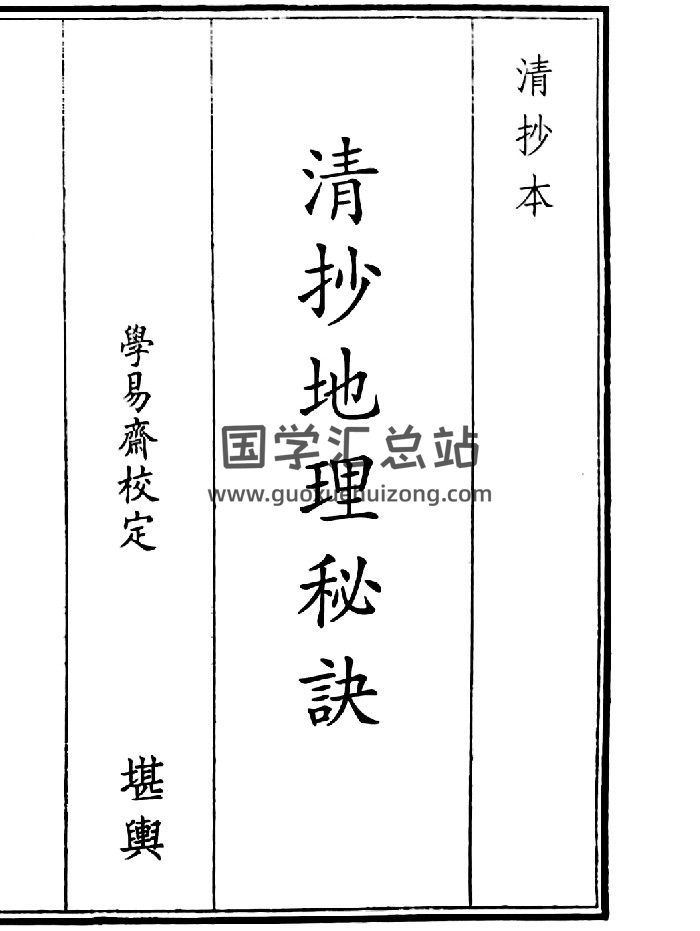 清抄本
清抄地理秘訣
學易齋校定
堪輿
国学汇总站
www.guoxuehuizong.com